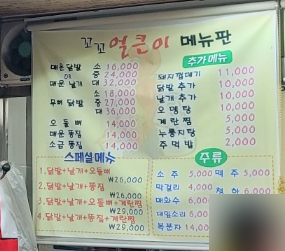 꼬꼬 얼큰이 메뉴판
매운닭발 소 16,000
or 중 24,000
매운날개 대 32,000
소 18,000
무뼈닭발 중 27,000
대 36,000
오돌뼈 14,000
매운똥집 14,000
소금똥집 14,000
추가메뉴
돼지껍데기 11,000
닭발 추가 10,000
날개 추가 10,000
오뎅탕 10,000
계란찜 5,000
누룽지탕 5,000
주먹밥 2,000
스페셜메뉴
1. 닭발+날개+오돌뼈
₩26,000
2. 닭발+날개+똥집
₩26,000
3. 닭발+날개+오돌뼈+계란찜
₩29,000
4. 닭발+날개+똥집+계란찜
₩29,000
주류
소주 5,000 맥주 5,000
막걸리 4,000 청하 6,000
매화수 6,000
매실소리 6,000
복분자 14,000